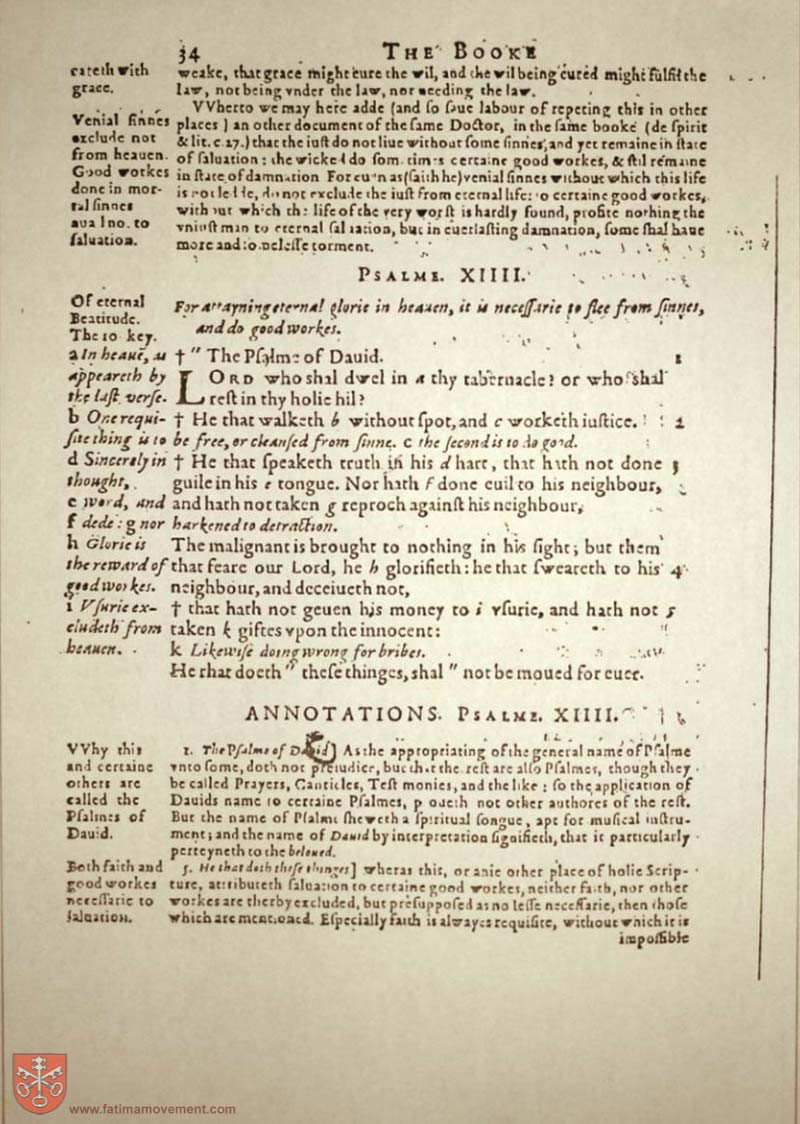 34 THE BOOKE
cateth with
grace.
weake, that grace might cure the wil, and the wil being cured might fulfil the
law, not being vnder the law, nor needing the law.
VVherto we may here adde (and so saue labour of repeting this in other
places) an other document of the same Doctor, in the same booke (de spirit
& lit. c 27.) that the iust do not liue without some sinnes, and yet remaine in state
of saluation: the wicked do som times certaine good workes, & stil remaine
in state of damnation For euen as (saith he) venial sinnes without which this life
is not ledde, do not exclude the iust from eternal life: so certaine good workes,
without which the life of the very worst is hardly found, profite nothing the
vniust man to eternal saluation, but in euerlasting damnation, some shal haue
more and some lesse torment.
Venial sinnes
exclude not
from heauen.
Good workes
done in mor-
tal sinnes
auail no. to
saluation.
PSALME. XIIII.
Of eternal
Beatitude.
The 10 key.
For attayning eternal glorie in heauen, it is necessarie to flee from sinnes,
and do good workes.
a In heauē, as
appeareth by
the last verse.
† " The Psalme of Dauid. 1
LORD who shal dwel in a thy tabernacle? or who shal
rest in thy holie hil?
b One requi- † He that walketh b without spot, and c worketh iustice. 2
site thing is to be free, or cleansed from sinne. c the second is to do good.
d Sincerely in † He that speaketh truth in his d hart, that hath not done 3
thought, guile in his e tongue. Nor hath f done euil to his neighbour,
e word, and and hath not taken g reproch against his neighbour,
f dede: g nor harkened to detraction.
h Glorie is The malignant is brought to nothing in his sight; but them
the reward of that feare our Lord, he h glorifieth: he that sweareth to his 4
good workes. neighbour, and deceiueth not,
i Vsurie ex- † that hath not geuen his money to i vsurie, and hath not 5
cludeth from taken k giftes vpon the innocent:
heauen. k Likewise doing wrong for bribes.
He that doeth " these thinges, shal " not be moued for euer.
ANNOTATIONS. PSALME. XIIII.
VVhy this
and certaine
others are
called the
Psalmes of
Dauid.
1. The Psalme of Dauid] As the appropriating of the general name of Psalme
vnto some, doth not preiudice, but that the rest are also Psalmes, though they
be called Prayers, Canticles, Testimonies, and the like: so the application of
Dauids name to certaine Psalmes, proueth not other authores of the rest.
But the name of Psalme sheweth a spiritual songue, apt for musical instru-
ment; and the name of Dauid by interpretation signifieth, that it particularly
perteyneth to the beloued.
Both faith and
good workes
necessarie to
saluation.
5. He that doth these thinges] wheras this, or anie other place of holie Scrip-
ture, attributeth saluation to certaine good workes, neither faith, nor other
workes are therby excluded, but presupposed as no lesse necessarie, then those
which are mentioned. Especially faith is alwayes requisite, without which it is
impossible
www.fatimamovement.com